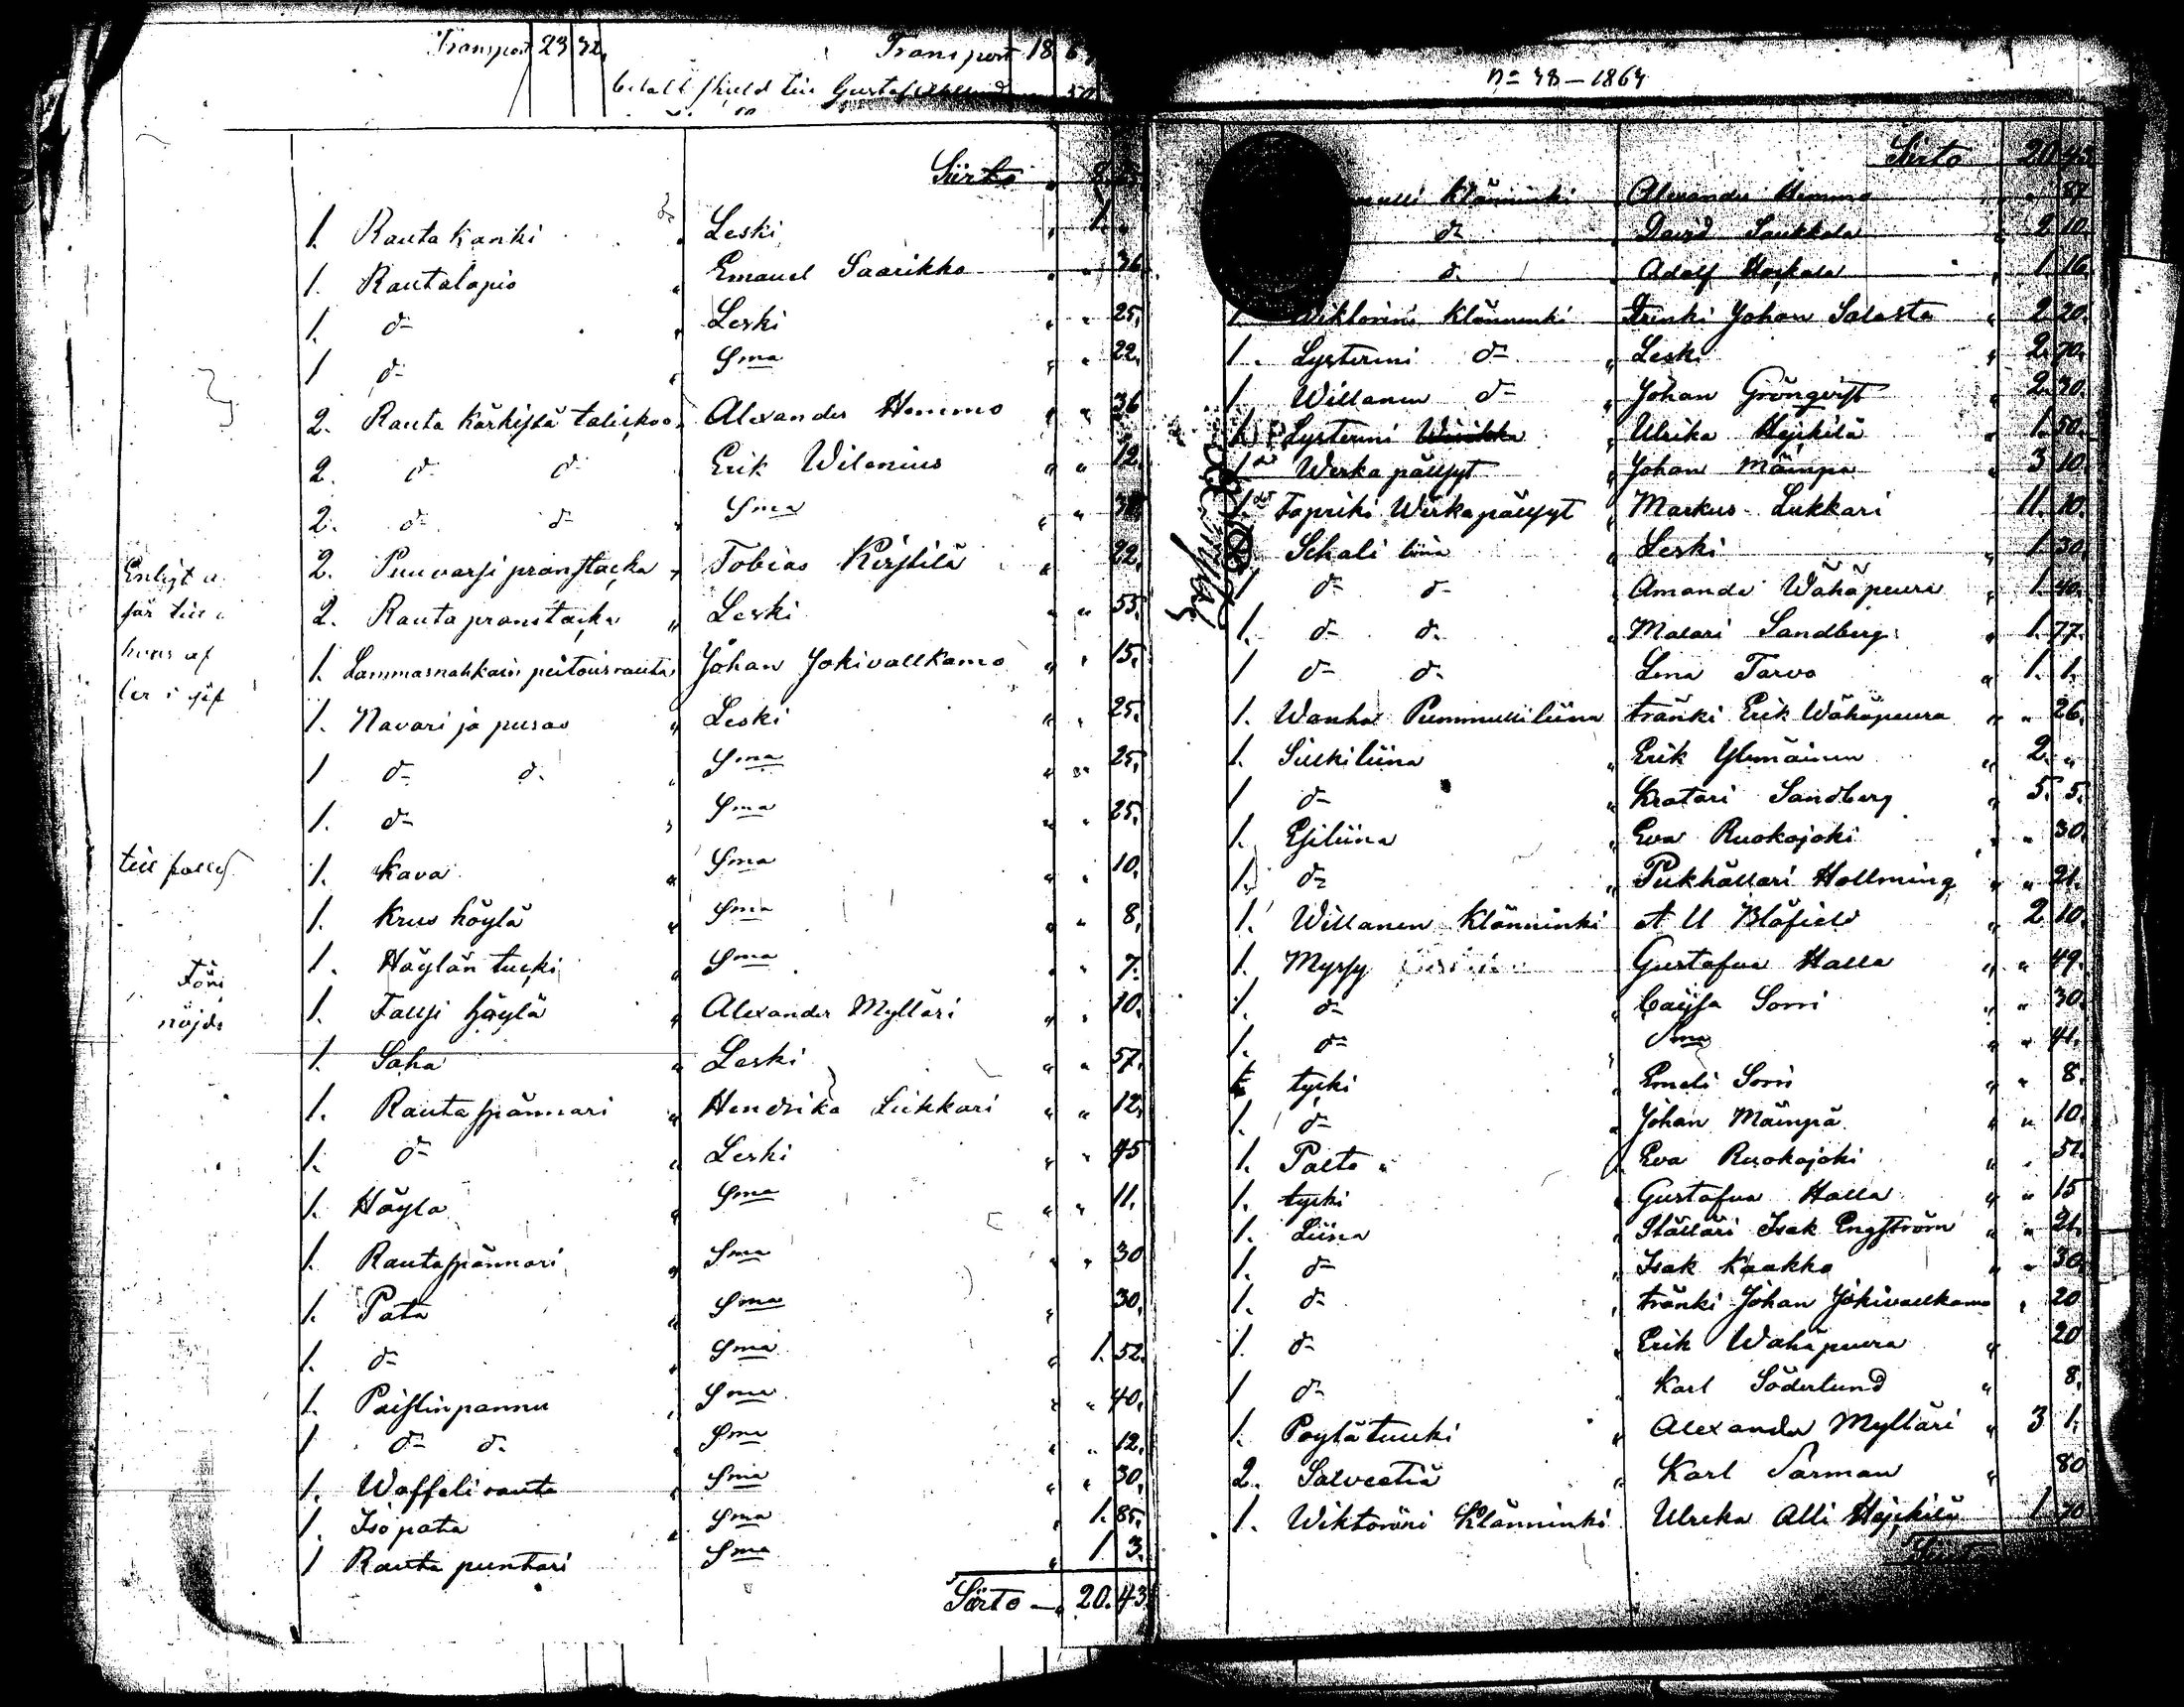 Transport 23 32,
Transport 18 6
betalt skuld till Gustaf 50
Siirto
1. Rautakanki " Leski " 1. "
1. Rautalapio " Emanuel Saarikko " " 36.
1. d:o " Leski " " 25.
1 d:o " Sma " " 22.
2. Rauta kärkistä talickoo " Alexander Hemmo " " 36
2. d:o d:o Erik Wilenius " " 12.
2. d:o d:o " Sma " "
2. Puuvarsi pranstacka " Tobias Kirstilä " 22.
2. Rauta pranstacka " Leski " " 55.
1. Lammasnahkain peitousrauta Johan Jokivallkamo " " 15.
1. Navari ja puras " Leski " " 25.
1 d:o d:o " Sma " " 25.
1. d:o " Sma " " 25.
1. Kava " Sma " " 10.
1. Krus höylä " Sma " " 8.
1. Höylän tucki " Sma " " 7.
1. Falssi höylä " Alexander Mylläri " " 10.
1. Saha " Leski " " 57.
1. Rautaspännari " Hendrika Liikkari " " 12.
1. d:o " Leski " " 45
1. Höyla " Sma " " 11.
1. Rautaspännari " Sma " " 30
1. Pata " Sma " 30.
1. d:o " Sma " 1. 52.
1. Paistinpannu " Sma " " 40.
1 d:o d:o " Sma " " 12.
1. Waffelirauta " Sma " " 30.
1. Iso pata " Sma " 1. 85.
1 Rauta puntari Sma " 1 3.
Siirto — " 20. 43.
Enligt
för till
hvars af
ler i
till
Föri
nöjd
No 48 — 1864
Siirto 20 43
Klänninki Alexander Hemmo " 87
d:o " David Saukkola " 2 10.
d:o " Adolf Heikola " 1. 16.
1. Wiktorini Klänninki Drenki Johan Salosta " 2 20.
1. Lysterini d:o " Leski " 2. 70.
1 Willanen d:o " Johan Grönqvist " 2. 30.
1 Lysterini " Ulrika Heickilä " 1. 50.
1 Werka pällsyt " Johan Mäinpä " 3 10.
1. Fapriki Werkapällsyt " Markus Lukkari 11. 10.
Schali liina " Leski " 1 30.
1 d:o d:o " Amanda Wähäpeura " 1. 40.
1. d:o d:o " Malari Sandberg " 1. 77.
1 d:o d:o " Lena Tarvo " 1. 1.
1. Wanha Pummulliliina tränki Erik Wähäpeura " " 26.
1. Silkiliina " Erik Ylimäinen " 2. "
1 d:o " Kratari Sandberg " 5. 5.
1. Esiliina " Eva Ruokojoki " " 30.
1. d:o " Pukhållari Hollming " " 21.
1. Willanen Klänninki A U Blåfield " 2 10.
1. Myssy Gustafva Halla " " 49.
1. d:o " Caijsa Sorri " " 30.
1. d:o " Sma " " 41.
tycki " Emeli Sorri " " 8.
1. d:o " Johan Mäinpä " " 10.
1. Palto " Eva Ruokojoki " " 51.
1. tycki " Gustafva Halla " " 15
1. Liina " Ställäri Isak Engström " " 21.
1. d:o " Isak Kaakko " " 30.
1. d:o " tränki Johan Jokivallkamo " 20
1. d:o " Erik Wähäpeura " 20
1 d:o " Karl Söderlund " 8.
1. Poytätuuki " Alexander Mylläri " 3 1.
2. Salveetiä " Karl Sarman " 80
1. Wiktorini Klänninki Ulrika Alli Heickilä 1 70